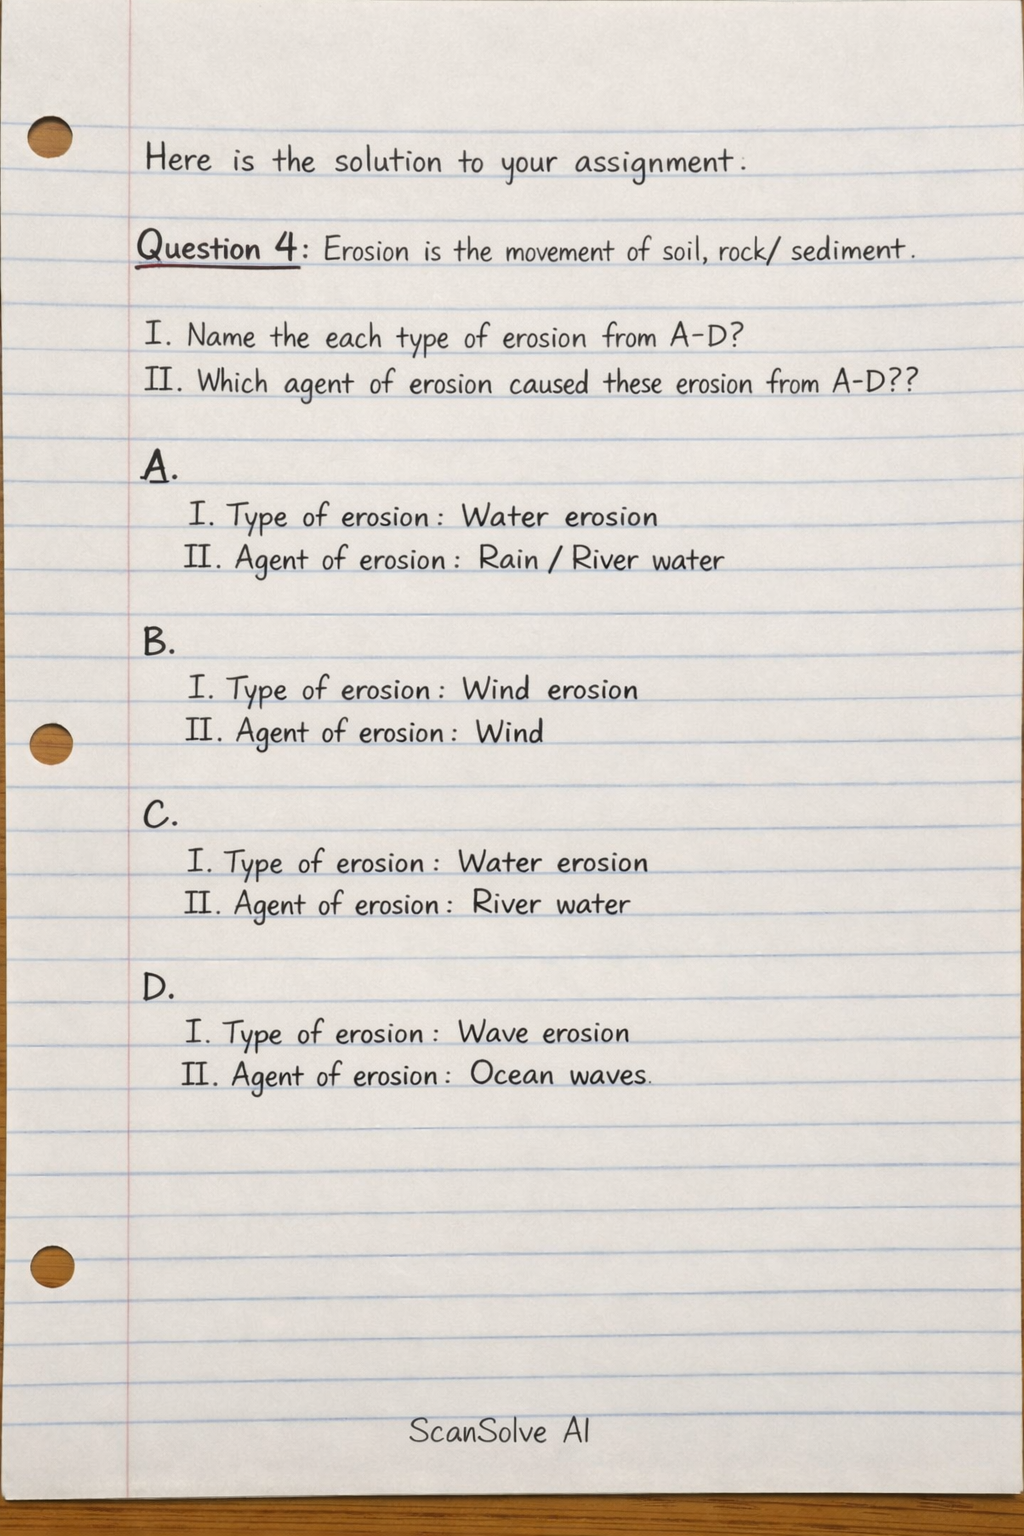 Here is the solution to your assignment:
Question 4: Erosion is the movement of soil, rock/ sediment.
I. Name the each type of erosion from A-D?
II. Which agent of erosion caused these erosion from A-D??
A.
I. Type of erosion: Water erosion
II. Agent of erosion: Rain / River water
B.
I. Type of erosion: Wind erosion
II. Agent of erosion: Wind
C.
I. Type of erosion: Water erosion
II. Agent of erosion: River water
D.
I. Type of erosion: Wave erosion
II. Agent of erosion: Ocean waves.
ScanSolve AI